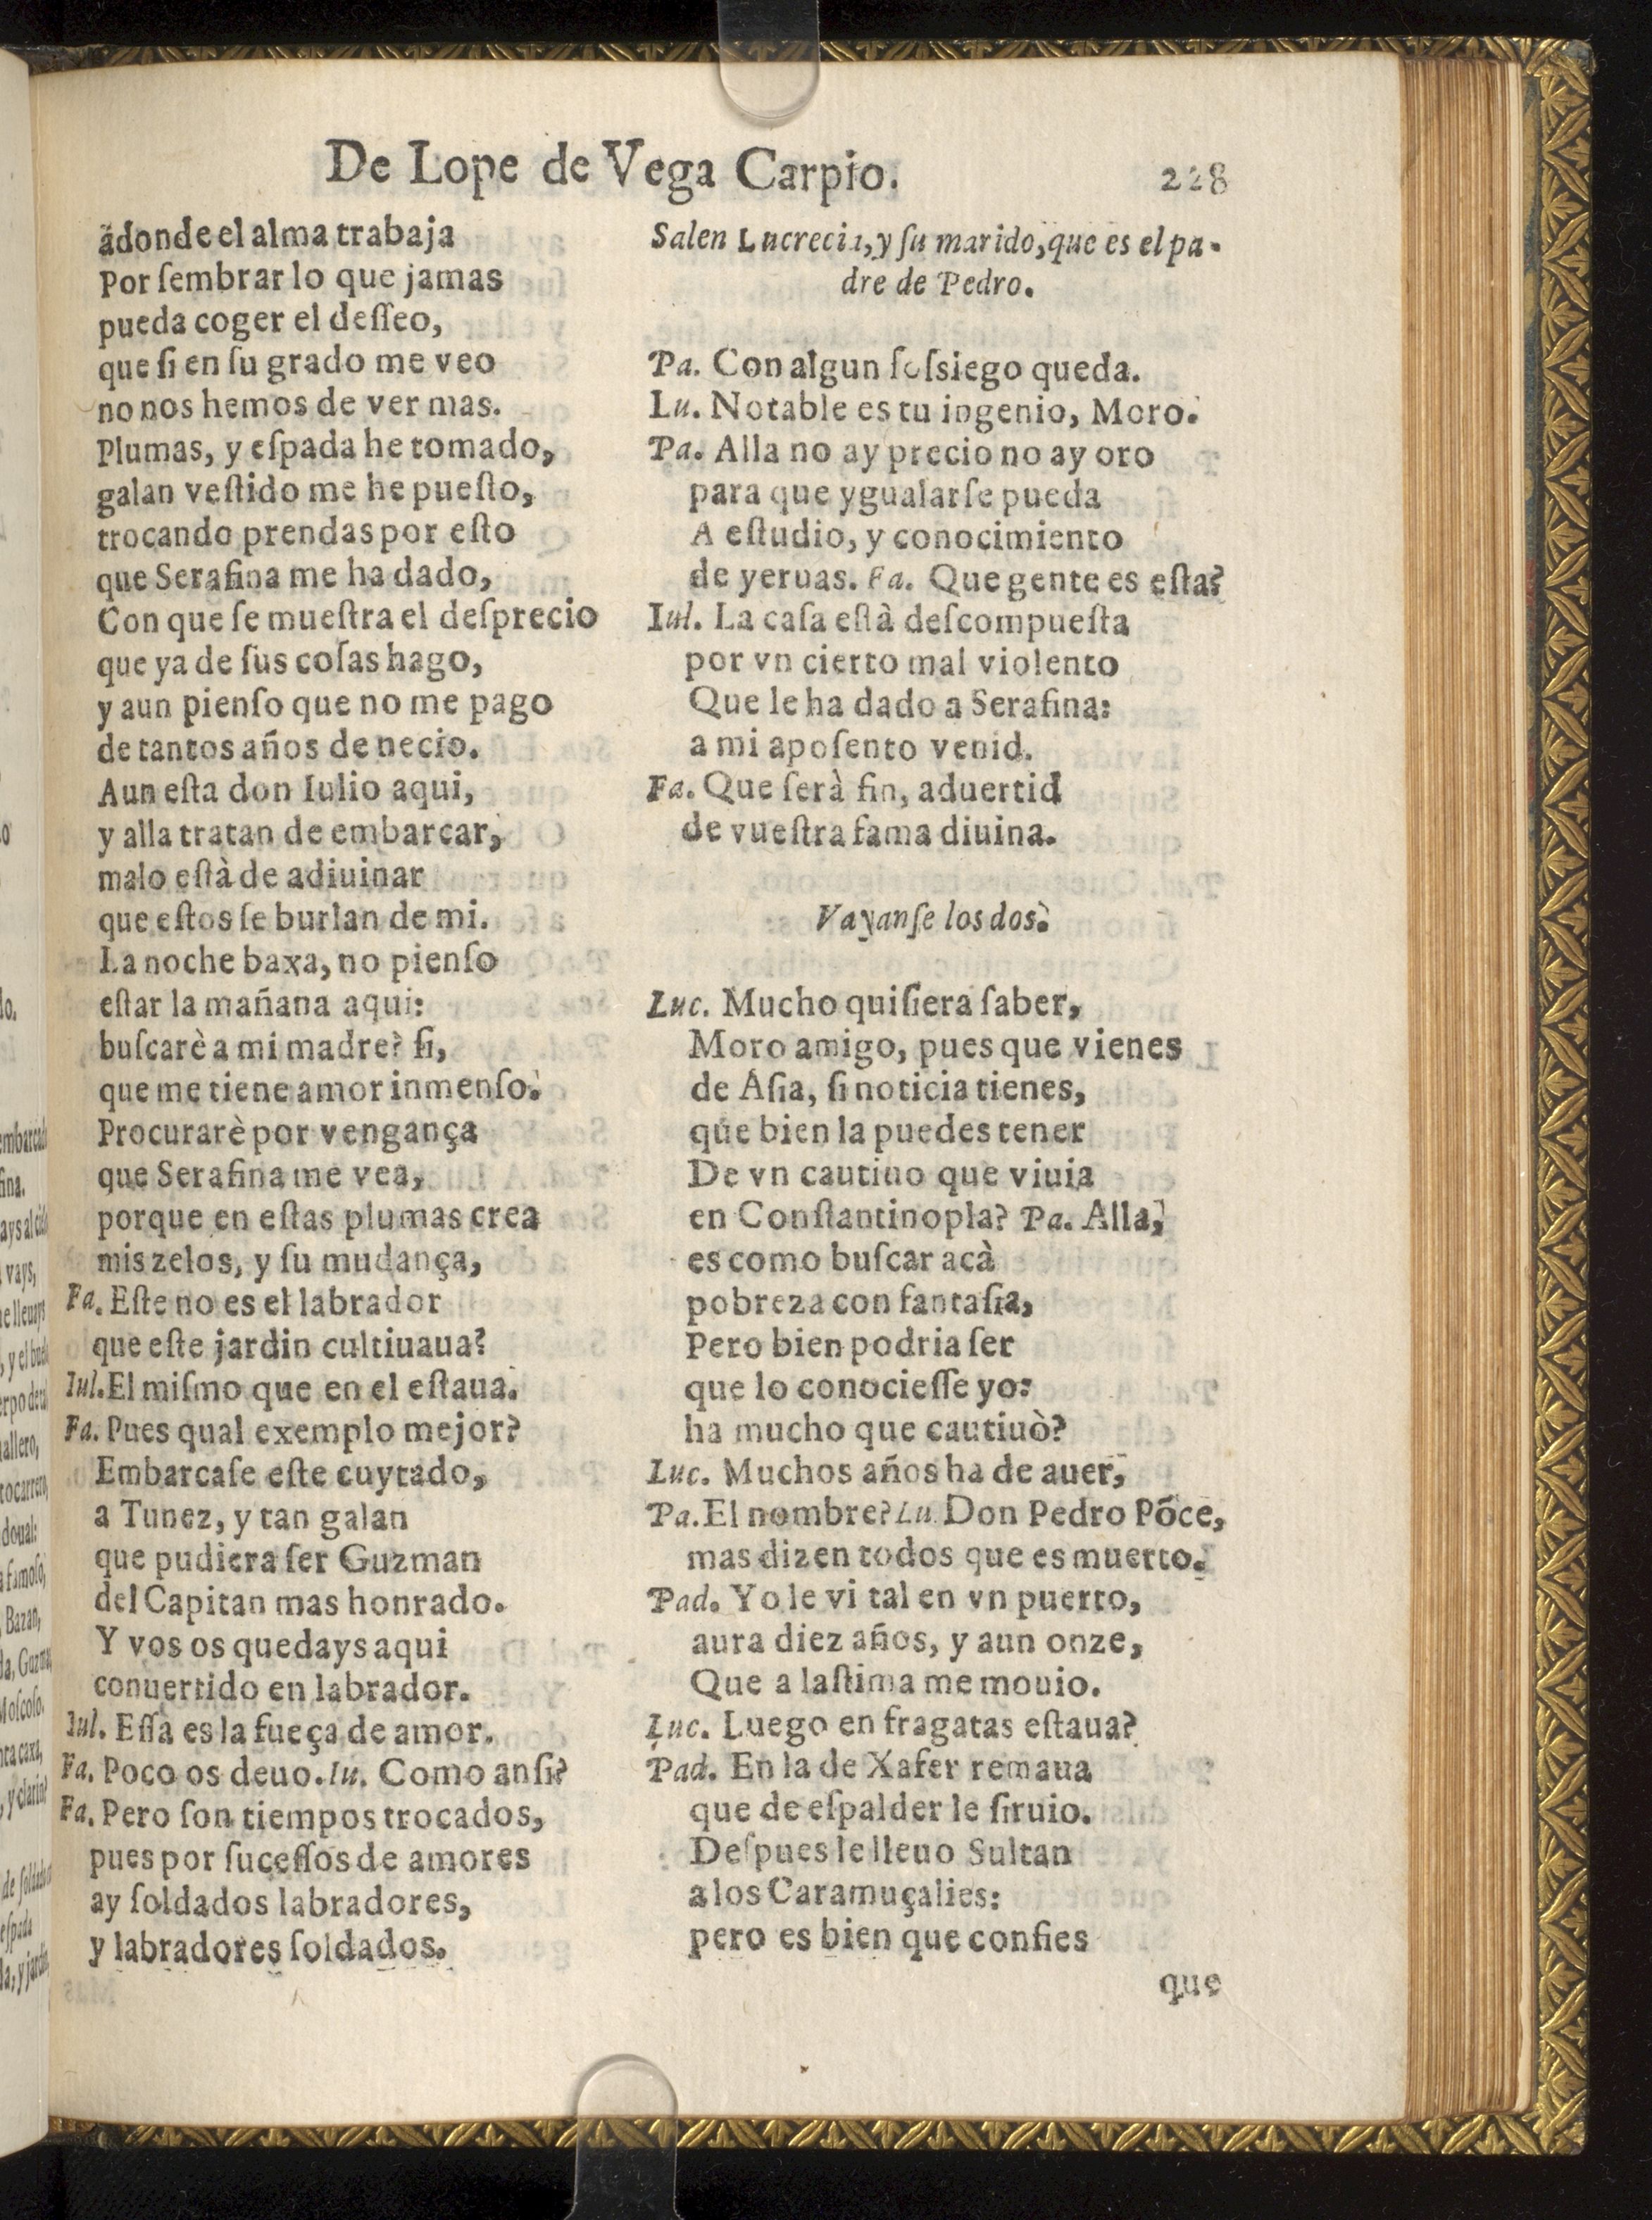 De Lope de Vega Carpio. 228
adonde el alma trabaja
Por ſembrar lo que jamas
pueda coger el deſſeo,
que ſi en ſu grado me veo
no nos hemos de ver mas.
Plumas, y eſpada he tomado,
galan veſtido me he pueſto,
trocando prendas por eſto
que Serafina me ha dado,
Con que ſe mueſtra el deſprecio
que ya de ſus coſas hago,
y aun pienſo que no me pago
de tantos años de necio.
Aun eſta don Iulio aqui,
y alla tratan de embarcar,
malo eſtà de adiuinar
que eſtos ſe burlan de mi.
La noche baxa, no pienſo
eſtar la mañana aqui:
buſcarè a mi madre? ſi,
que me tiene amor inmenſo.
Procurarè por vengança
que Serafina me vea,
porque en eſtas plumas crea
mis zelos, y ſu mudança,
Fa. Eſte no es el labrador
que eſte jardin cultiuaua?
Iul. El miſmo que en el eſtaua.
Fa. Pues qual exemplo mejor?
Embarcaſe eſte cuytado,
a Tunez, y tan galan
que pudiera ſer Guzman
del Capitan mas honrado.
Y vos os quedays aqui
conuertido en labrador.
Iul. Eſſa es la fueça de amor.
Fa. Poco os deuo. Iu. Como anſi?
Fa. Pero ſon tiempos trocados,
pues por ſuceſſos de amores
ay ſoldados labradores,
y labradores ſoldados.
Salen Lucrecia, y ſu marido, que es el pa-
dre de Pedro.
Pa. Con algun ſoſsiego queda.
Lu. Notable es tu ingenio, Moro.
Pa. Alla no ay precio no ay oro
para que ygualarſe pueda
A eſtudio, y conocimiento
de yeruas. Fa. Que gente es eſta?
Iul. La caſa eſtà deſcompueſta
por vn cierto mal violento
Que le ha dado a Serafina:
a mi apoſento venid.
Fa. Que ſerà fin, aduertid
de vueſtra fama diuina.
Vayanſe los dos.
Luc. Mucho quiſiera ſaber,
Moro amigo, pues que vienes
de Aſia, ſi noticia tienes,
que bien la puedes tener
De vn cautiuo que viuia
en Conſtantinopla? Pa. Alla,
es como buſcar acà
pobreza con fantaſia,
Pero bien podria ſer
que lo conocieſſe yo:
ha mucho que cautiuò?
Luc. Muchos años ha de auer,
Pa. El nombre? Lu. Don Pedro Põce,
mas dizen todos que es muerto.
Pad. Yo le vi tal en vn puerto,
aura diez años, y aun onze,
Que a laſtima me mouio.
Luc. Luego en fragatas eſtaua?
Pad. En la de Xafer remaua
que de eſpalder le ſiruio.
Deſpues le lleuo Sultan
a los Caramuçalies:
pero es bien que confies
que